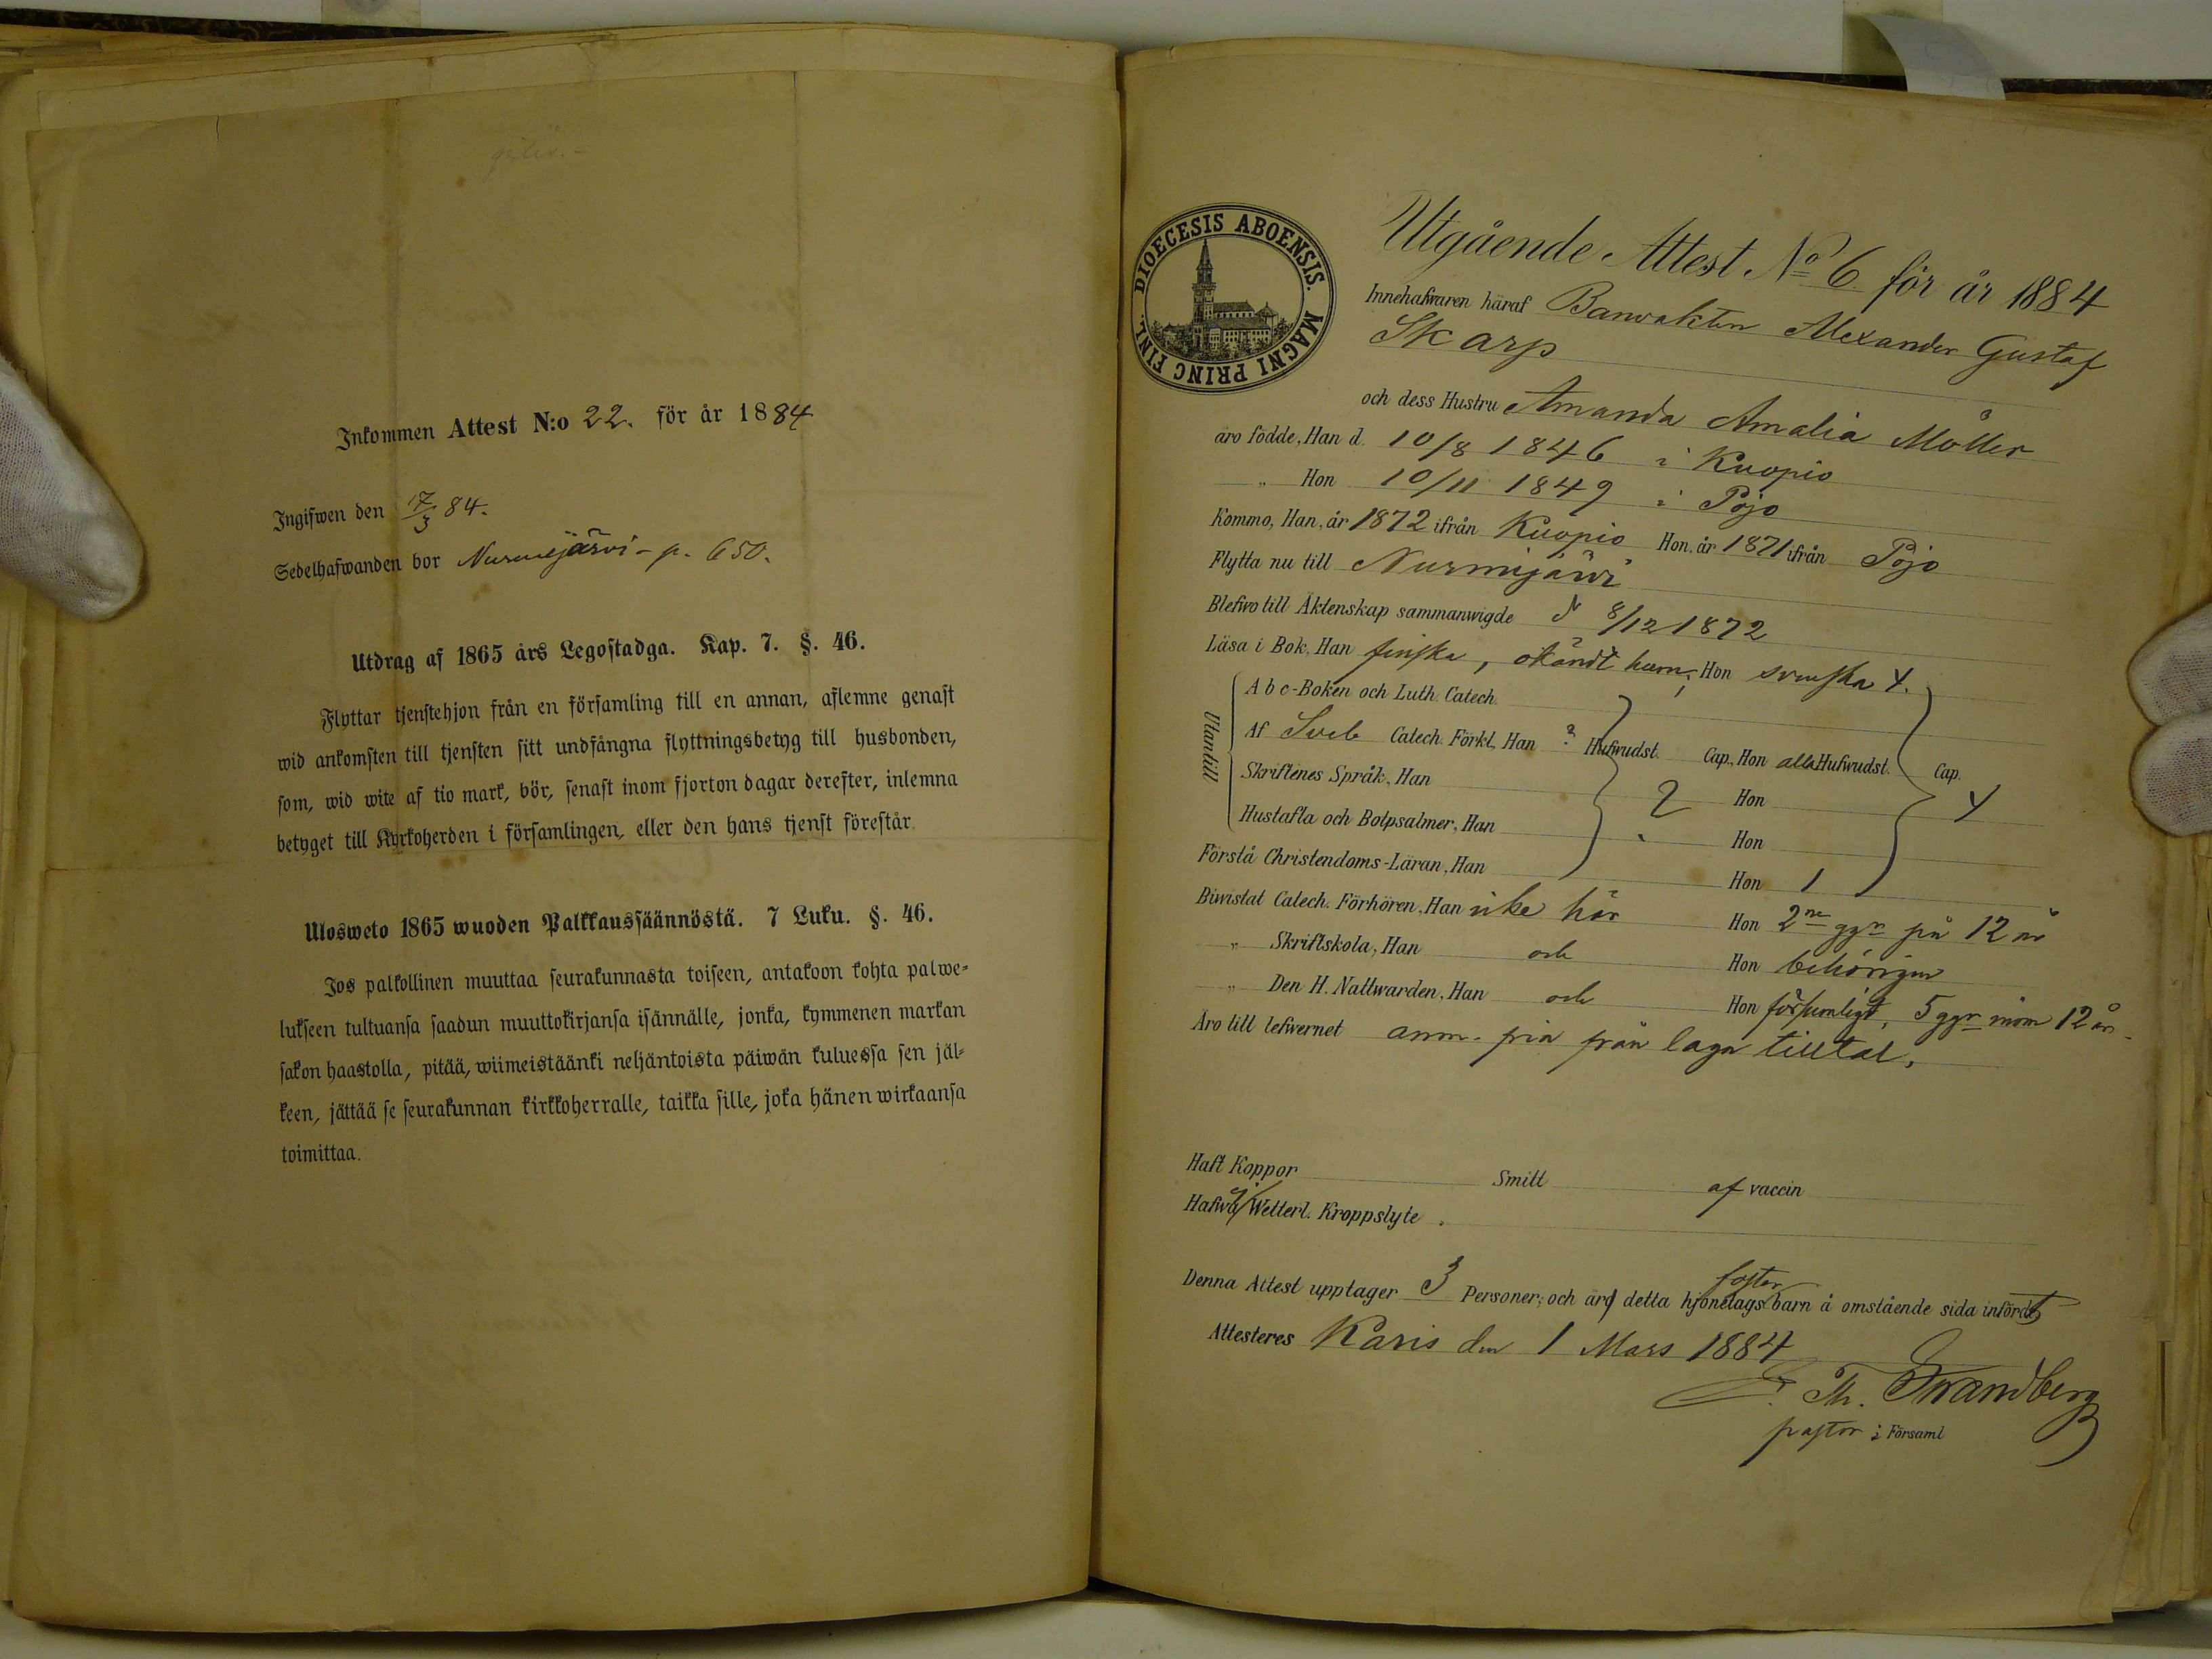 Inkommen Attest N:o 22. för år 1884
Ingifwen den 17/3 84.
Sedelhafwanden bor Nurmijärvi - p. 650.
Utdrag af 1865 års Legostadga. Kap. 7. §. 46.
Flyttar tjenstehjon från en församling till en annan, aflemne genast
wid ankomsten till tjensten sitt undfångna flyttningsbetyg till husbonden,
som, wid wite af tio mark, bör, senast inom fjorton dagar derefter, inlemna
betyget till Kyrkoherden i församlingen, eller den hans tjenst förestår.
Ulosweto 1865 wuoden Palkkaussäännöstä. 7 Luku. §. 46.
Jos palkollinen muuttaa seurakunnasta toiseen, antakoon kohta palwe-
lukseen tultuansa saadun muuttokirjansa isännälle, jonka, kymmenen markan
sakon haastolla, pitää, wiimeistäänki neljäntoista päiwän kuluessa sen jäl-
keen, jättää se seurakunnan kirkkoherralle, taikka sille, joka hänen wirkaansa
toimittaa.
DIOECESIS ABOENSIS. MAGNI PRINC FINL.
Utgående Attest No 6 för år 1884
Innehafwaren häraf Banvakten Alexander Gustaf
Skarp
och dess Hustru Amanda Amalia Möller
äro födde, Han d. 10/8 1846 i Kuopio
" Hon 10/11 1849 i Pojo
Kommo, Han, år 1872 ifrån Kuopio Hon, år 1871 ifrån Pojo
Flytta nu till Nurmijärvi
Blefwo till Äktenskap sammanwigde d 8/12 1872
Läsa i Bok, Han finska, okändt huru; Hon svenska 4.
Utantill
A b c-Boken och Luth. Catech.
Af Sveb Catech. Förkl., Han ? Hufwudst. Cap., Hon alla Hufwudst. Cap.
Skriftenes Språk, Han ? Hon 4
Hustafla och Botpsalmer, Han Hon
Förstå Christendoms-Läran, Han Hon 1
Biwistat Catech. Förhören, Han icke här Hon 2ne ggr på 12 år
" Skriftskola, Han och Hon behörigen
" Den H. Nattwarden, Han och Hon försumligt, 5 ggr inom 12 år.
Äro till lefwernet anm. fria från laga tilltal.
Haft Koppor Smitt af vaccin
Hafwa ej Wetterl. Kroppslyte.
Denna Attest upptager 3 Personer; och äro detta hjonelags foster barn å omstående sida infördt
Attesteres Karis den 1 Mars 1884
Th. Strandberg
pastor i Församl